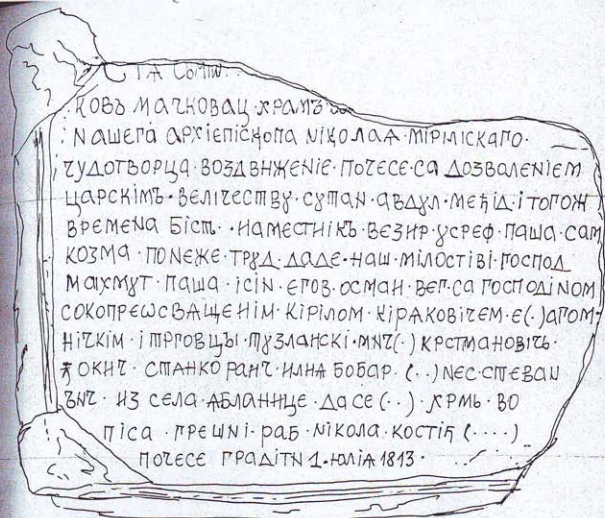 ГА СОМІѠ
КОВЪ МАЧКОВАЦ · ХРАМЪ
NАШЕГА АРХІЕПІСКОПА NІКОЛАѦ · МІРІЛІСКАГО ·
ЧУДОТВОРЦА · ВОЗДВНЖЕNІЕ · ПОЧЕСЕ · СА ДОЗВАЛЕNІЕМ
ЦАРСКІМЪ · ВЕЛІЧЕСТВУ · СУТАN · АВДУЛ · МЕЂІД · І ТОГОЖ
ВРЕМЕNА БІСТЬ · NАМЕСТNІКЪ ВЕЗИР · УСРЕФ · ПАША · САМ
КОЗМА · ПОNЕЖЕ · ТРУД · ДАДЕ · NАШ · МІЛОСТІВІ · ГОСПОД
МАХМУТ · ПАША · ІСІN · ЕГОВ · ОСМАN · ВЕГ · СА ГОСПОДІNОМ
СОКОПРЕѠСВАЩЕNІМ · КІРІЛОМ · КІРАКОВІЧЕМ · Е(.)АГОМ ·
NІЧКІМ · І ТРГОВЦЫ · ТУЗЛАNСКІ · МNЧ(.) КРСТМАNОВІЧЬ ·
ЂОКИЧ · СТАNКО РАNЧ · ИЛИѦ БОБАР (. .) NЕС · СТЕВАN
ЪNЧ · ИЗ СЕЛА · АБЛАNИЦЕ · ДА СЕ (. .) · ХРМЬ · ВО
ПІСА · ГРЕШNІ · РАБ · NІКОЛА · КОСТІЂ (. . . .)
ПОЧЕСЕ ГРАДІТN 1. ЮЛІѦ 1813 ·